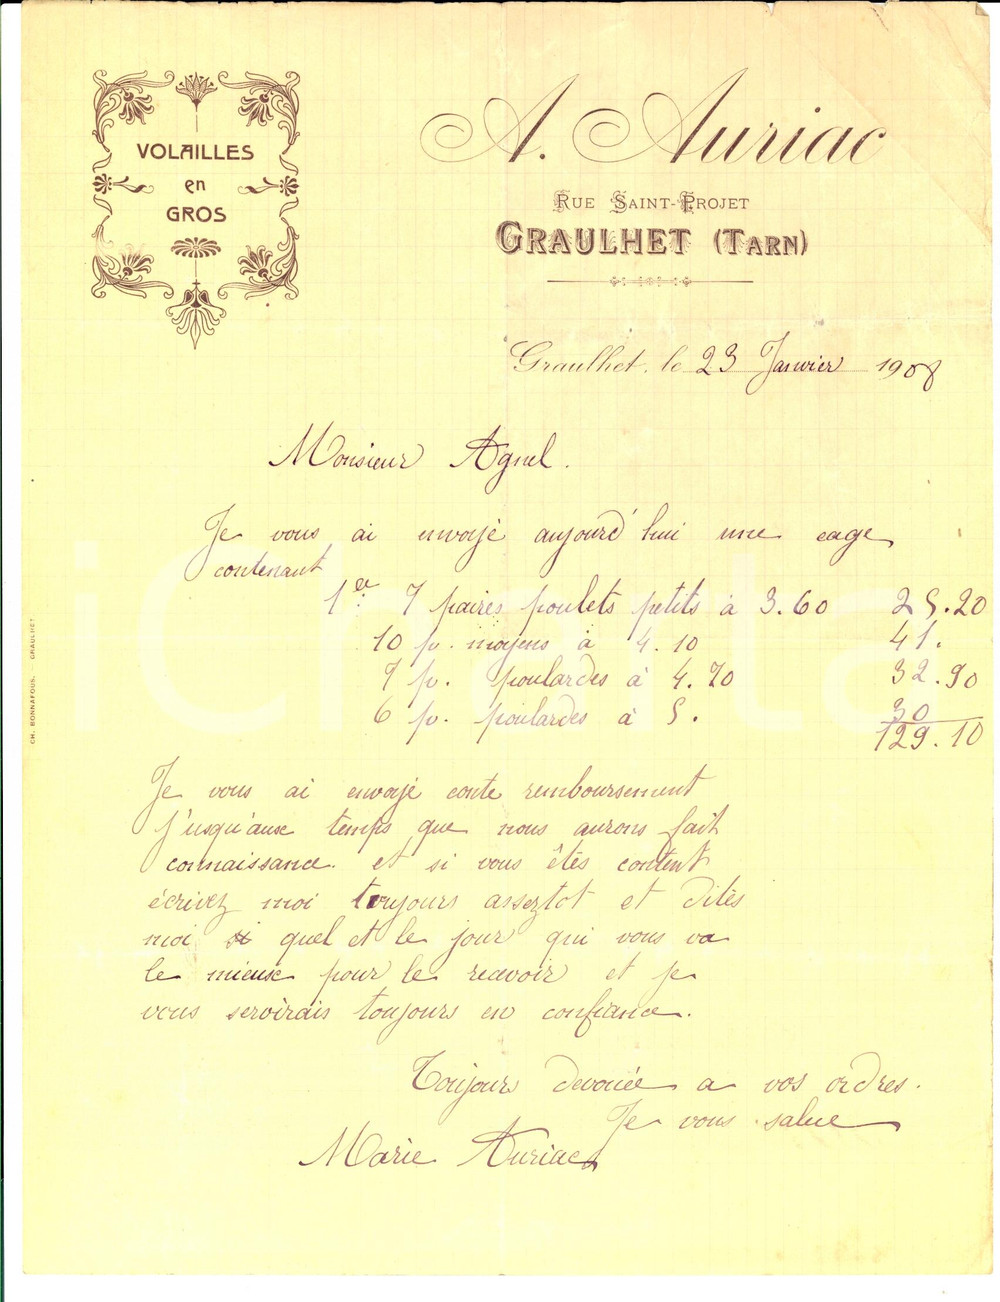 VOLAILLES
en
GROS
A. Auriac
RUE SAINT-PROJET
GRAULHET (TARN)
Graulhet, le 23 Janvier 1908
Monsieur Agnel.
Je vous ai envoyé aujourd'hui une cage
contenant
7 paires poulets petits à 3.60 25.20
10 p. moyens à 4.10 41.
7 p. poulardes à 4.70 32.90
6 p. poulardes à 5. 30
129.10
Je vous ai envoyé conte remboursement
j'usqu'aux temps que nous aurons fait
connaissance. et si vous êtes content
écrivez moi toujours asseztot et dites
moi quel et le jour qui vous va
le mieux pour le recavoir et je
vous servirais toujours en confiance.
Toujour devouée a vos ordres.
Je vous salue
Marie Auriac
CH. BONNAFOUS. GRAULHET
iCharta